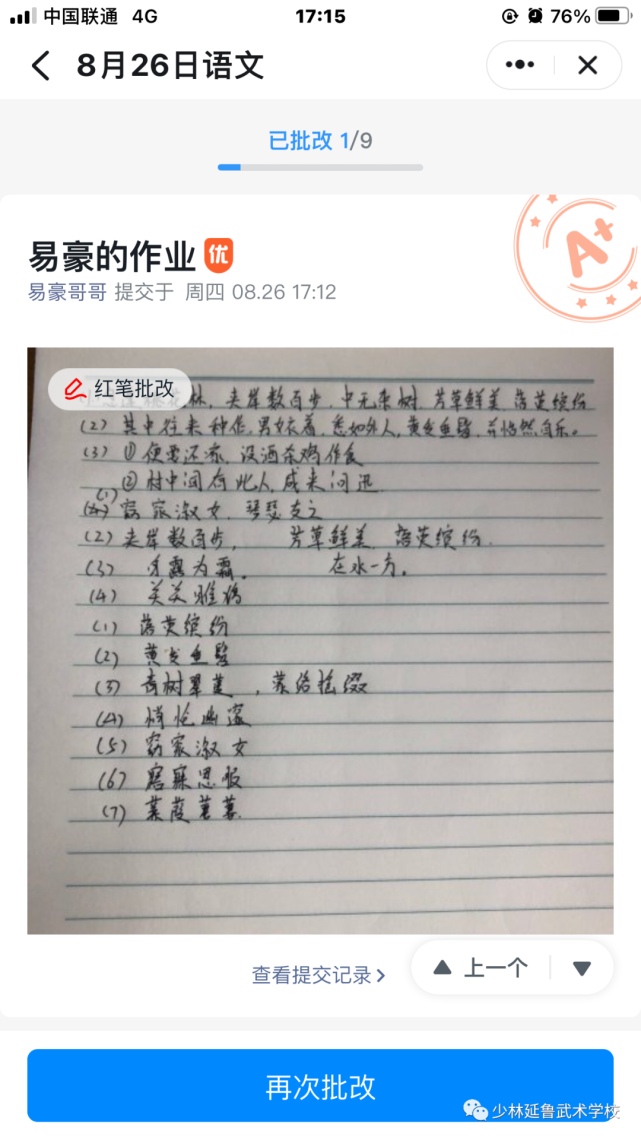 中国联通 4G 17:15 76%
8月26日语文
已批改 1/9
A+
易豪的作业 优
易豪哥哥 提交于 周四 08.26 17:12
红笔批改
林，夹岸数百步，中无杂树，芳草鲜美，落英缤纷
(2) 其中往来种作，男女衣着，悉如外人，黄发垂髫，并怡然自乐。
(3) ① 便要还家，设酒杀鸡作食
② 村中闻有此人，咸来问迅
(1) 窈窕淑女，琴瑟友之
(2) 夹岸数百步， 芳草鲜美，落英缤纷．
(3) 为霜。 在水一方．
(4) 关关雎鸠
(1) 落英缤纷
(2) 黄发垂髫
(3) 青树翠蔓，蒙络摇缀
(4) 悄怆幽邃
(5) 窈窕淑女
(6) 寤寐思服
(7) 蒹葭萋萋．
查看提交记录
上一个
再次批改
少林延鲁武术学校